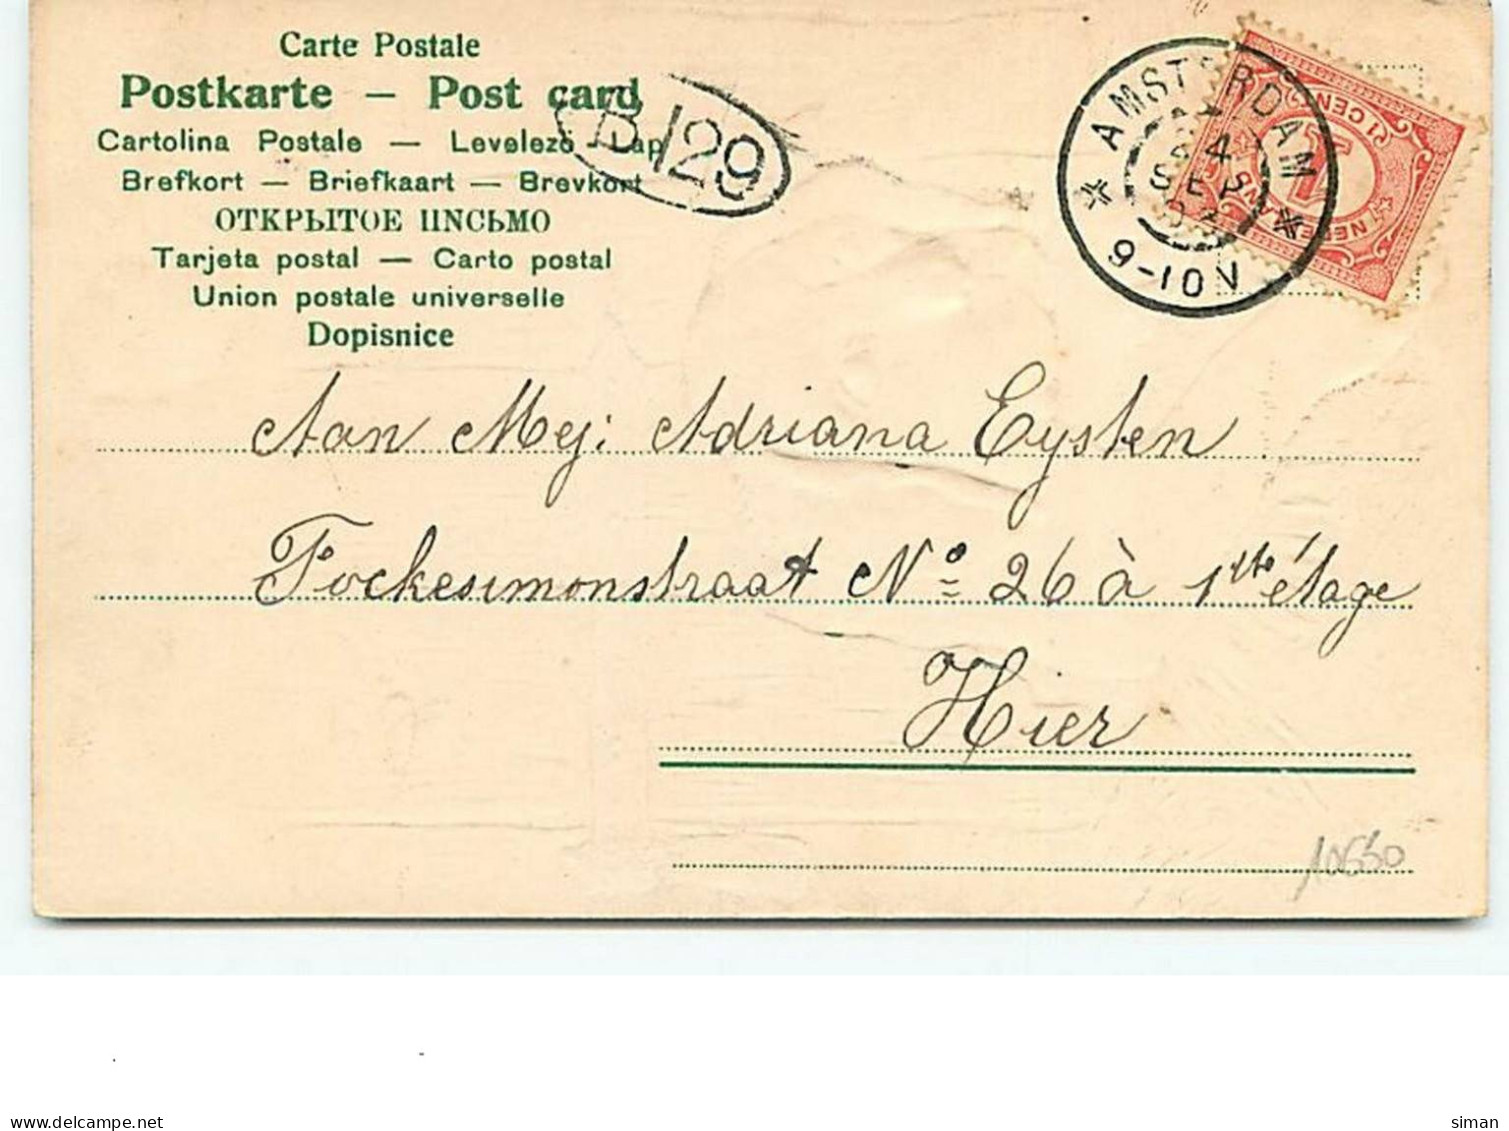 Carte Postale
Postkarte — Post card
Cartolina Postale — Levelező - Lap
Brefkort — Briefkaart — Brevkort
ОТКРЫТОЕ ПИСЬМО
Tarjeta postal — Carto postal
Union postale universelle
Dopisnice
B 129
AMSTERDAM
4
SEP
9-10V
1 CENT
Aan Mej: Adriana Eysten
Fockesimonstraat No 26 à 1ste étage
Hier
delcampe.net
siman